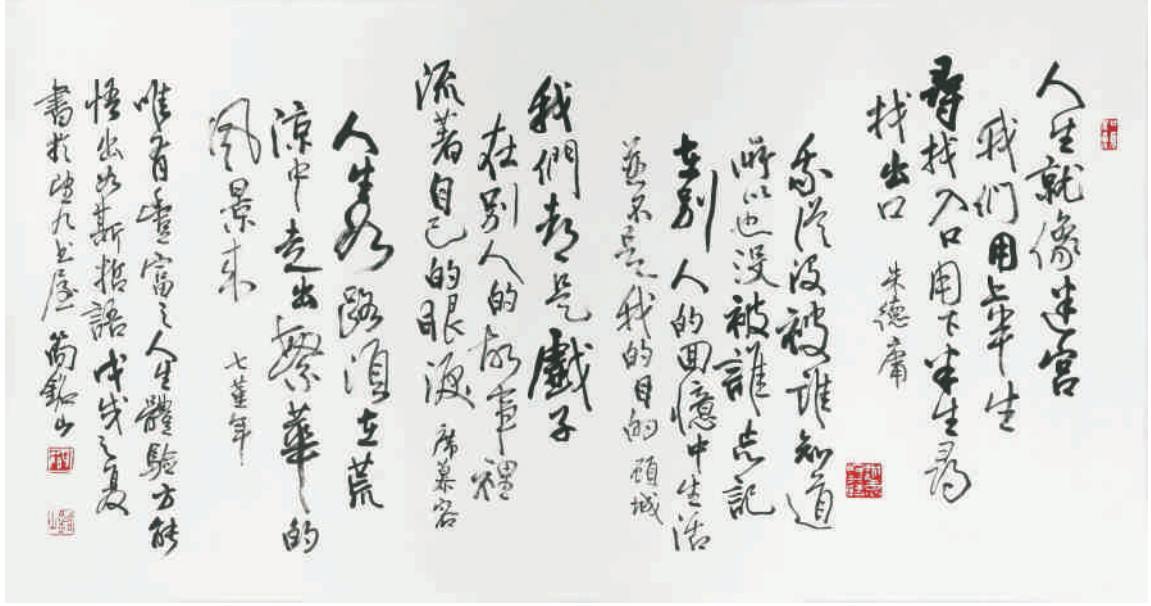 人生就像迷宫
我们用上半生
尋找入口用下半生尋
找出口 朱德庸
我從沒被誰知道
所以也没被誰忘記
在别人的回憶中生活
並不是我的目的 顧城
我們都是戲子
在别人的故事裡
流著自己的眼淚 席慕容
人生的路須在荒
涼中走出繁華的
风景来 七堇年
唯有豐富之人生體驗方能
悟出如斯哲語戊戌之夏
書於 九 屋 銘山